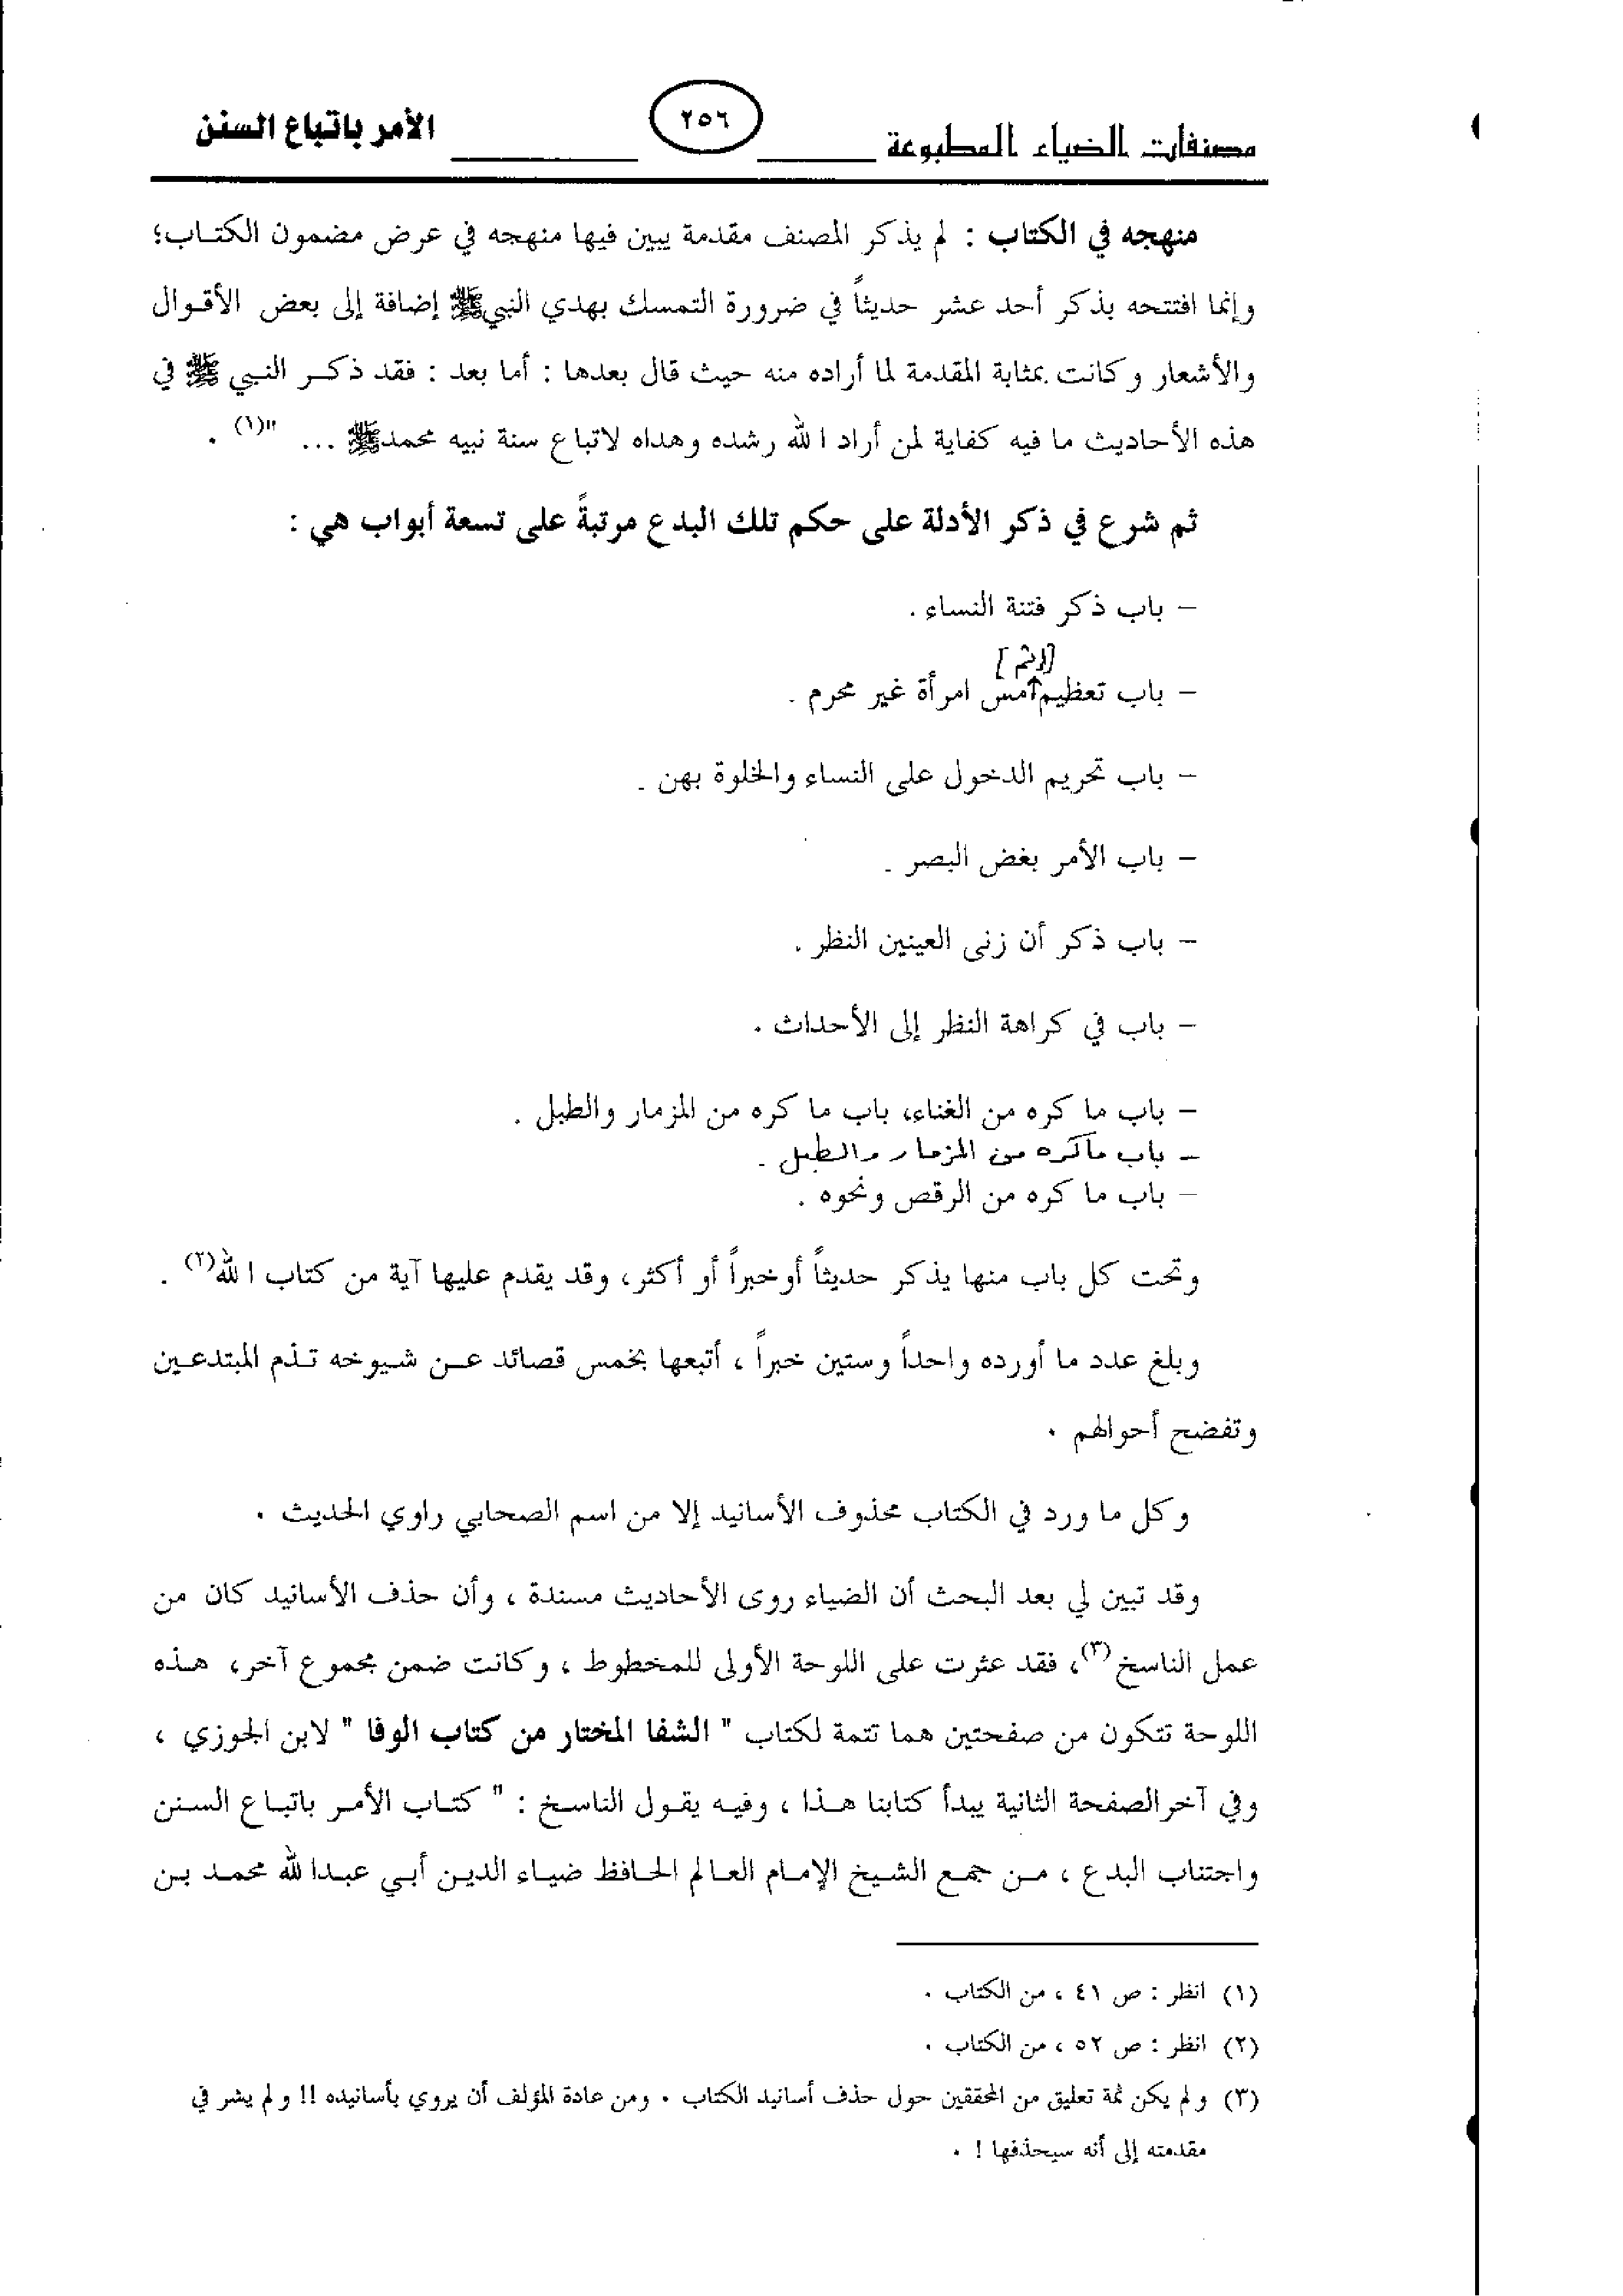 مصنفات الضياء المطبوعة ٢٥٦ الأمر باتباع السنن
منهجه في الكتاب : لم يذكر المصنف مقدمة يبين فيها منهجه في عرض مضمون الكتاب؛
وإنما افتتحه بذكر أحد عشر حديثاً في ضرورة التمسك بهدي النبي ﷺ إضافة إلى بعض الأقوال
والأشعار وكانت بمثابة المقدمة لما أراده منه حيث قال بعدها : أما بعد : فقد ذكر النبي ﷺ في
هذه الأحاديث ما فيه كفاية لمن أراد الله رشده وهداه لاتباع سنة نبيه محمد ﷺ ... "(١) .
ثم شرع في ذكر الأدلة على حكم تلك البدع مرتبةً على تسعة أبواب هي :
– باب ذكر فتنة النساء .
[إثم]
– باب تعظيم↑مس امرأة غير محرم .
– باب تحريم الدخول على النساء والخلوة بهن .
– باب الأمر بغض البصر .
– باب ذكر أن زنى العينين النظر .
– باب في كراهة النظر إلى الأحداث .
– باب ما كره من الغناء، باب ما كره من المزمار والطبل .
– باب ما كره من المزمار والطبل .
– باب ما كره من الرقص ونحوه .
وتحت كل باب منها يذكر حديثاً أو خبراً أو أكثر، وقد يقدم عليها آية من كتاب الله(٢) .
وبلغ عدد ما أورده واحداً وستين خبراً ، أتبعها بخمس قصائد عن شيوخه تذم المبتدعين
وتفضح أحوالهم .
وكل ما ورد في الكتاب محذوف الأسانيد إلا من اسم الصحابي راوي الحديث .
وقد تبين لي بعد البحث أن الضياء روى الأحاديث مسندة ، وأن حذف الأسانيد كان من
عمل الناسخ(٣)، فقد عثرت على اللوحة الأولى للمخطوط ، وكانت ضمن مجموع آخر، هذه
اللوحة تتكون من صفحتين هما تتمة لكتاب " الشفا المختار من كتاب الوفا " لابن الجوزي ،
وفي آخر الصفحة الثانية يبدأ كتابنا هذا ، وفيه يقول الناسخ : " كتاب الأمر باتباع السنن
واجتناب البدع ، من جمع الشيخ الإمام العالم الحافظ ضياء الدين أبي عبدالله محمد بن
(١) انظر : ص ٤١ ، من الكتاب .
(٢) انظر : ص ٥٢ ، من الكتاب .
(٣) ولم يكن ثمة تعليق من المحققين حول حذف أسانيد الكتاب . ومن عادة المؤلف أن يروي بأسانيده !! ولم يشر في
مقدمته إلى أنه سيحذفها ! .